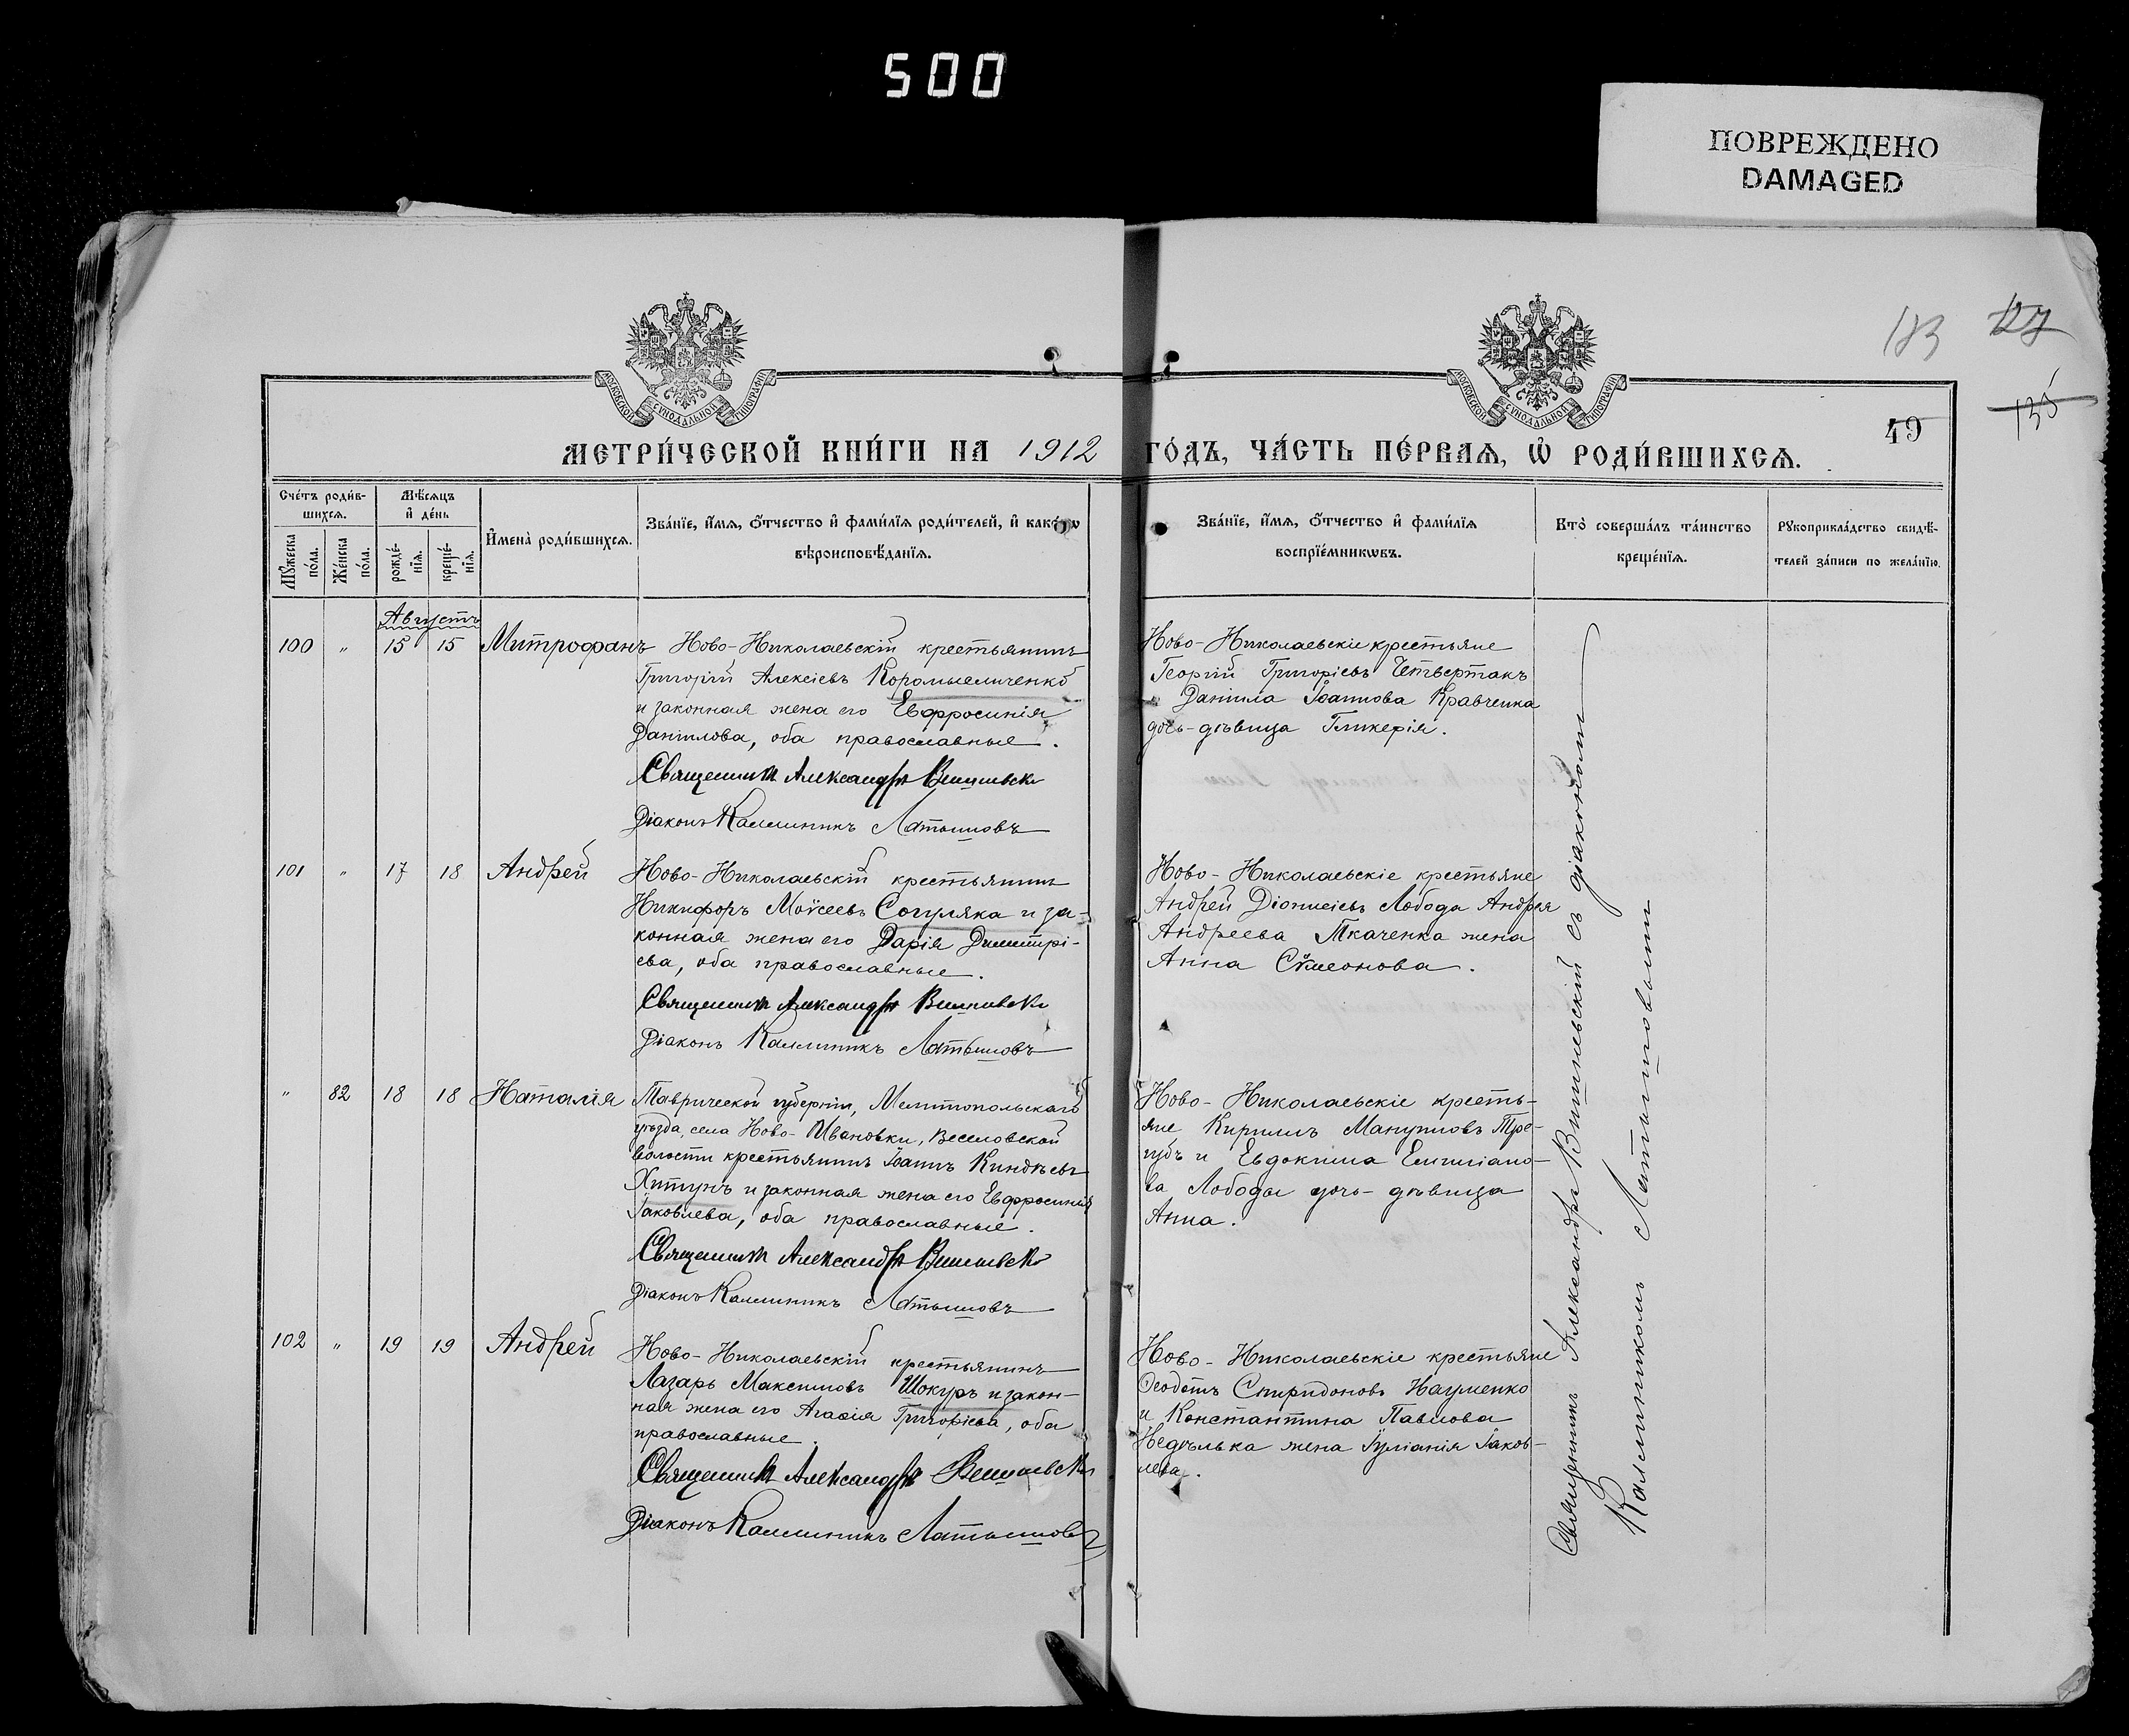 500
ПОВРЕЖДЕНО
DAMAGED
183
127
135
49
МОСКОВСКОЙ СѴНОДАЛЬНОЙ ТИПОГРАФІИ
МОСКОВСКОЙ СѴНОДАЛЬНОЙ ТИПОГРАФІИ
МЕТРИ́ЧЕСКОЙ КНИ́ГИ НА 1912 ГО́ДЪ, ЧА́СТЬ ПЕ́РВАѦ, Ѡ҆ РОДИ́ВШИХСѦ.
Счéтъ роди́в-
шихсѧ.
Мꙋ́жеска
по́ла.
Же́нска
по́ла.
Мѣ́сѧцъ
и҆ де́нь
рожде́-
нїѧ.
креще́-
нїѧ.
И҆мена̀ роди́вшихсѧ.
Зва́нїе, и҆́мѧ, ѻ҆́тчество и҆ фами́лїѧ роди́телей, и҆ како́гѡ
вѣроисповѣ́данїѧ.
Зва́нїе, и҆́мѧ, ѻ҆́тчество и҆ фами́лїѧ
воспрїе́мникѡвъ.
Кто̀ соверша́лъ та́инство
креще́нїѧ.
Рꙋкоприкла́дство свидѣ́-
телей за́писи по жела́нїю.
Августъ
100 " 15 15 Митрофанъ
Ново-Николаевскій крестьянинъ
Григорій Алексіевъ Коромысличенко
и законная жена его Евфросинія
Даніилова, оба православные.
Священникъ Александръ Вишневскі
Діаконъ Каллиникъ Латышовъ
Ново-Николаевскіе крестьяне
Георгій Григоріевъ Четвертакъ
и Даніила Іоаннова Кравченка
дочь-дѣвица Гликерія.
101 " 17 18 Андрей
Ново-Николаевскій крестьянинъ
Никифоръ Моѵсеевъ Согуляка и за-
конная жена его Дарія Димитрі-
ева, оба православные.
Священникъ Александръ Вишневскі
Діаконъ Каллиникъ Латышовъ
Ново-Николаевскіе крестьяне
Андрей Діонисіевъ Лобода Андрея
Андреева Ткаченка жена
Анна Сѵмеонова.
" 82 18 18 Наталія
Таврической губерніи, Мелитопольскаго
уѣзда, села Ново-Ивановки, Веселовской
волости крестьянинъ Іоаннъ Киндѣевъ
Хитунъ и законная жена его Евфросинія
Іаковлева, оба православные.
Священникъ Александръ Вишневскі
Діаконъ Каллиникъ Латышовъ
Ново-Николаевскіе кресть-
яне Кириллъ Мануиловъ Тре-
губъ и Евдокима Емиліано-
ва Лободы дочь-дѣвица
Анна.
102 " 19 19 Андрей
Ново-Николаевскій крестьянинъ
Лазарь Максимовъ Шокуръ и закон-
ная жена его Агафія Григоріева, оба
православные.
Священникъ Александръ Вишневскі
Діаконъ Каллиникъ Латышовъ
Ново-Николаевскіе крестьяне
Ѳеодотъ Спиридоновъ Науменко
и Константина Павлова
Недѣлька жена Іуліанія Іаков-
лева.
Священникъ Александръ Вишневскій съ діакономъ
Каллиникомъ Латышовымъ